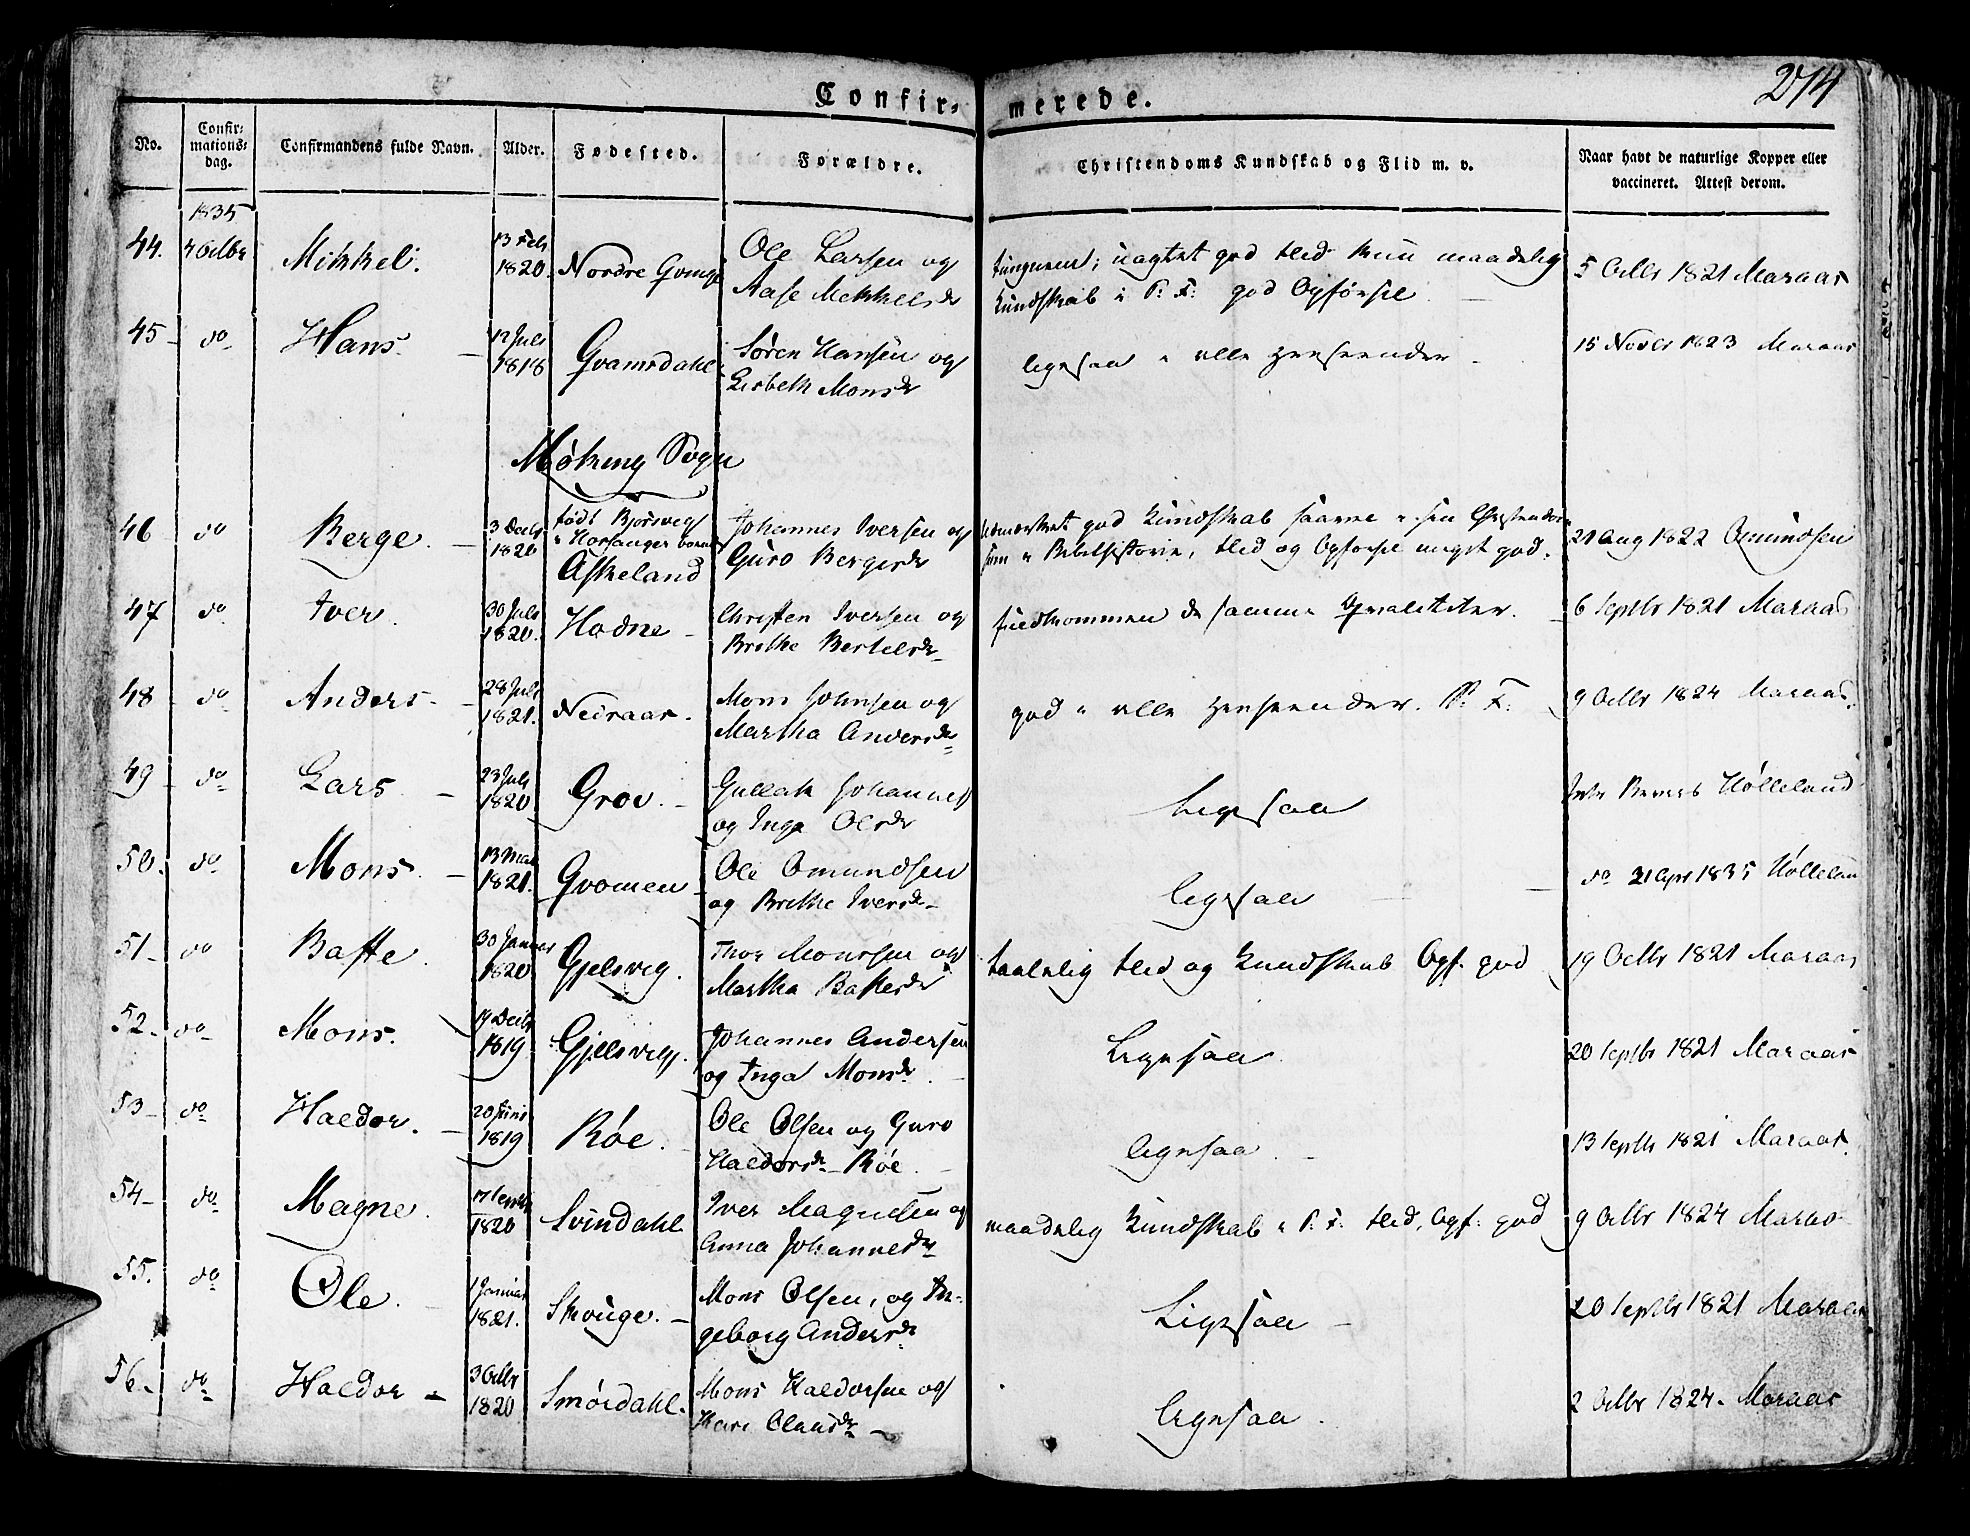 274
Confirmerede.
No. Confirmationsdag. Confirmandens fulde Navn. Alder. Fødested. Forældre. Christendoms Kundskab og Flid m. v. Naar havt de naturlige Kopper eller vaccineret. Attest derom.
1835
44. 4 Octbr Mikkel. 13 Feb 1820 Nordre Ole Larsen og Aase Mikkelsdr uagtet god Flid kun maadelig Kundskab i P: F: god Opførsel 5 Octbr 1821 Maraas
45 do Hans. 12 Juli 1818 Gvamsdahl Søren Hansen og Lisbeth Monsdr ligesaa i alle Henseender 15 Novbr 1823 Maraas
Høking Sogn
46 do Berge. 3 Decbr 1820 født Askeland Johannes Iversen og Guro Bergesdr god Kundskab saavel i sin Christendom som i Bibelhistorie, Flid og Opførsel meget god. 21 Aug 1822 Omundsen
47 do Iver. 30 Juli 1820. Hodne Christen Iversen og Brithe Bertelsdr fuldkommen de samme Qvaliteter. 6 Septbr 1821 Maraas
48 do Anders 28 Juli 1821. Nedraas. Mons Johnsen og Martha Andersdr god i alle Henseender. P. F. 9 Octbr 1824 Maraas
49 do Lars 23 Juli 1820 Grov. Gullak Johannes og Inga Olsdr Ligesaa Hølleland
50. do Mons. 13 Mai 1821. Gvomen Ole Omundsen og Brithe Iversdr ligesaa do 21 Apr 1835 Høllelan
51. do Bafte. 30 Januar 1820 Gjelsvig. Thor Monssen og Martha Baftesdr taalelig Flid og Kundskab Opf. god 19 Octbr 1821 Maraas
52. do Mons. 19 Decbr 1819 Gjelsvig. Johannes Andersen og Inga Monsdr. Ligesaa 20 Septbr 1821 Maraas
53 do Haldor. 20 Juni 1819 Røe. Ole Olsen og Guro Haldorsdr Røe. ligesaa 13 Septbr 1821 Maraas.
54 do Magne. 17 Septbr 1820 Svindahl Iver Magnesen og Anna Johannesdr maadelig Kundskab i P. F. Flid, Opf: god 9 Octbr 1824 Maraas
55. do Ole. 1 Januar 1821. Skouge. Mons Olsen, og Ingeborg Andersdr Ligesaa 20 Septbr 1821 Maraas
56. do Haldor 3 Octbr 1820 Smørdahl. Mons Haldorsen og Kari Clausdr ligesaa. 2 Octbr 1824. Maraas